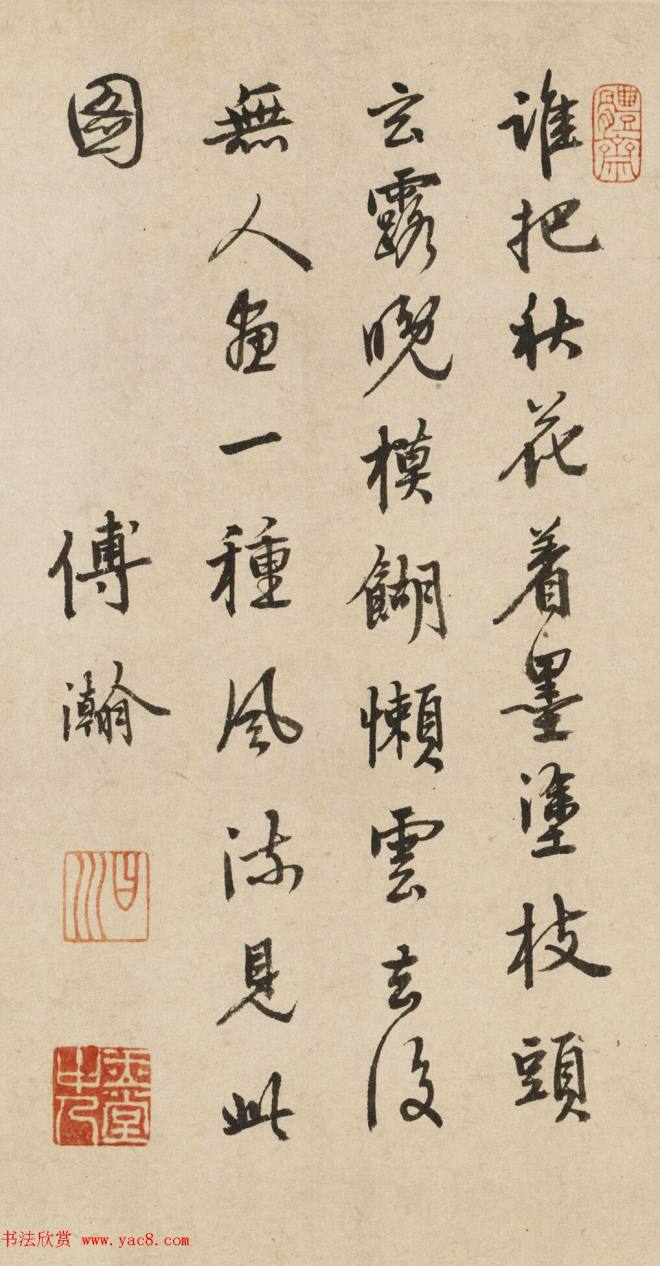 體齋
誰把秋花着墨塗枝頭
玄露晚模餬懶雲去後
無人畫一種風流見此
圖
傅瀚
日川
玉堂中人
书法欣赏 www.yac8.com